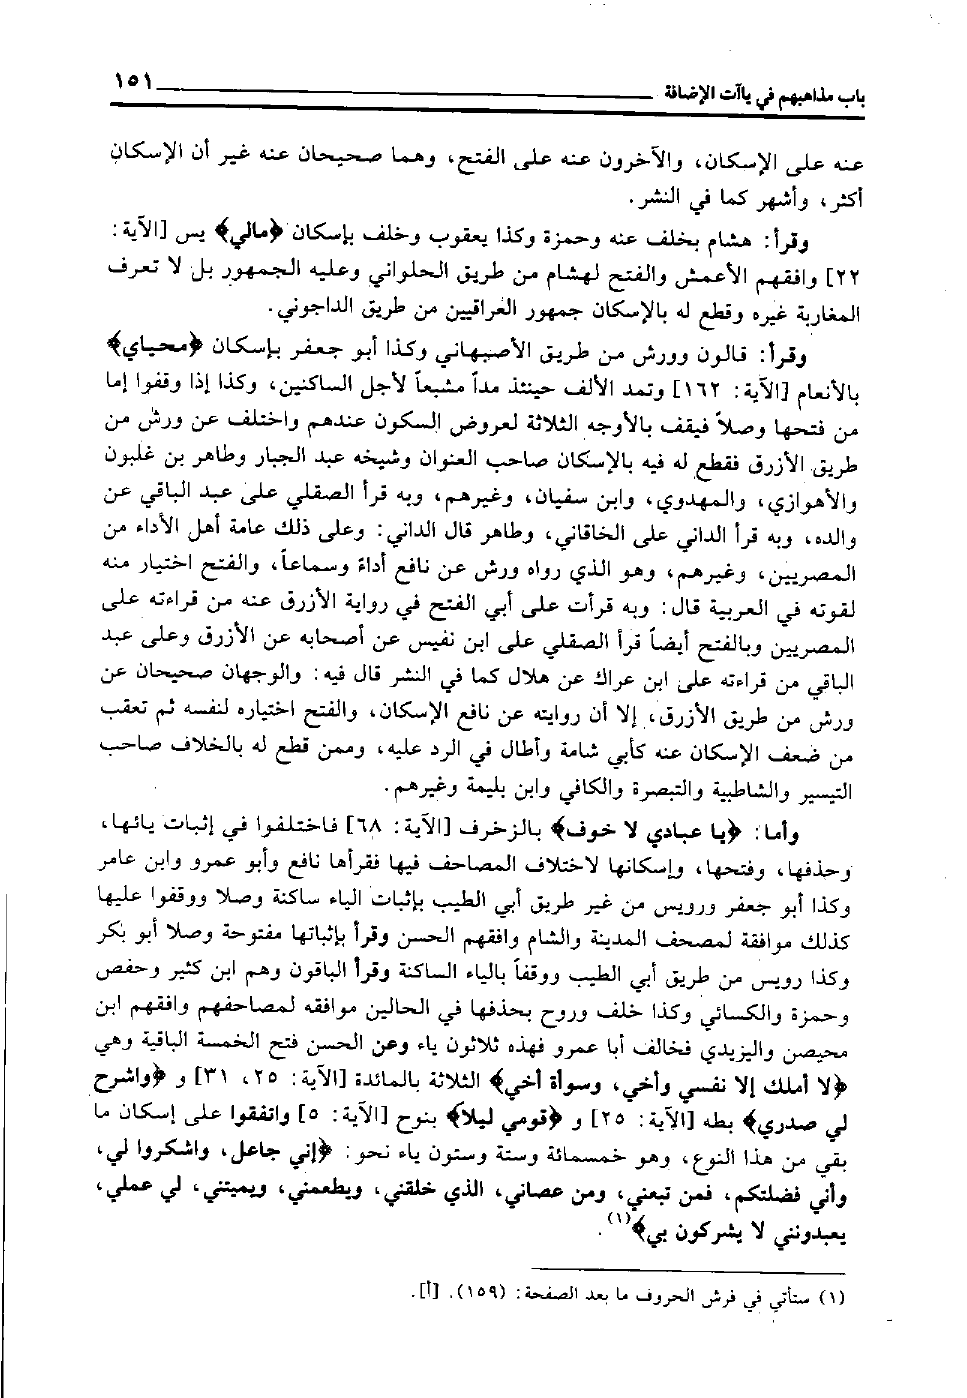 باب مذاهبهم في ياآت الإضافة ١٥١
عنه على الإسكان، والآخرون عنه على الفتح، وهما صحيحان عنه غير أن الإسكان
أكثر، وأشهر كما في النشر.
وقرأ: هشام بخلف عنه وحمزة وكذا يعقوب وخلف بإسكان ﴿مالي﴾ يس [الآية:
٢٢] وافقهم الأعمش والفتح لهشام من طريق الحلواني وعليه الجمهور بل لا تعرف
المغاربة غيره وقطع له بالإسكان جمهور العراقيين من طريق الداجوني.
وقرأ: قالون وورش من طريق الأصبهاني وكذا أبو جعفر بإسكان ﴿محياي﴾
بالأنعام [الآية: ١٦٢] وتمد الألف حينئذ مداً مشبعاً لأجل الساكنين، وكذا إذا وقفوا إما
من فتحها وصلاً فيقف بالأوجه الثلاثة لعروض السكون عندهم واختلف عن ورش من
طريق الأزرق فقطع له فيه بالإسكان صاحب العنوان وشيخه عبد الجبار وطاهر بن غلبون
والأهوازي، والمهدوي، وابن سفيان، وغيرهم، وبه قرأ الصقلي على عبد الباقي عن
والده، وبه قرأ الداني على الخاقاني، وطاهر قال الداني: وعلى ذلك عامة أهل الأداء من
المصريين، وغيرهم، وهو الذي رواه ورش عن نافع أداءً وسماعاً، والفتح اختيار منه
لقوته في العربية قال: وبه قرأت على أبي الفتح في رواية الأزرق عنه من قراءته على
المصريين وبالفتح أيضاً قرأ الصقلي على ابن نفيس عن أصحابه عن الأزرق وعلى عبد
الباقي من قراءته على ابن عراك عن هلال كما في النشر قال فيه: والوجهان صحيحان عن
ورش من طريق الأزرق، إلا أن روايته عن نافع الإسكان، والفتح اختياره لنفسه ثم تعقب
من ضعف الإسكان عنه كأبي شامة وأطال في الرد عليه، وممن قطع له بالخلاف صاحب
التيسير والشاطبية والتبصرة والكافي وابن بليمة وغيرهم.
وأما: ﴿يا عبادي لا خوف﴾ بالزخرف [الآية: ٦٨] فاختلفوا في إثبات يائها،
وحذفها، وفتحها، وإسكانها لاختلاف المصاحف فيها فقرأها نافع وأبو عمرو وابن عامر
وكذا أبو جعفر ورويس من غير طريق أبي الطيب بإثبات الياء ساكنة وصلا ووقفوا عليها
كذلك موافقة لمصحف المدينة والشام وافقهم الحسن وقرأ بإثباتها مفتوحة وصلا أبو بكر
وكذا رويس من طريق أبي الطيب ووقفاً بالياء الساكنة وقرأ الباقون وهم ابن كثير وحفص
وحمزة والكسائي وكذا خلف وروح بحذفها في الحالين موافقه لمصاحفهم وافقهم ابن
محيصن واليزيدي فخالف أبا عمرو فهذه ثلاثون ياء وعن الحسن فتح الخمسة الباقية وهي
﴿لا أملك إلا نفسي وأخي، وسوأة أخي﴾ الثلاثة بالمائدة [الآية: ٢٥، ٣١] و ﴿واشرح
لي صدري﴾ بطه [الآية: ٢٥] و ﴿قومي ليلا﴾ بنوح [الآية: ٥] واتفقوا على إسكان ما
بقي من هذا النوع، وهو خمسمائة وستة وستون ياء نحو: ﴿إني جاعل، واشكروا لي،
وأني فضلتكم، فمن تبعني، ومن عصاني، الذي خلقني، ويطعمني، ويميتني، لي عملي،
يعبدونني لا يشركون بي﴾(١).
(١) ستأتي في فرش الحروف ما بعد الصفحة: (١٥٩). [أ].